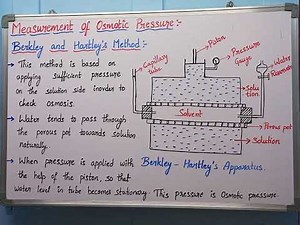 Measurement of Osmotic Pressure:-
Berkley and Hartley's Method:-
→ This method is based on
applying sufficient pressure
on the solution side inorder to
check osmosis.
→ Water tends to pass through
the porous pot towards solution
naturally.
→ When pressure is applied with
the help of the piston, so that
water level in tube becomes stationary. This pressure is osmotic pressure
Capillary
tube
Piston
Pressure
Gauge
Water
Reservoir
Solu
tion.
Solvent
Porous pot
Solution
Berkley - Hartley's Apparatus.